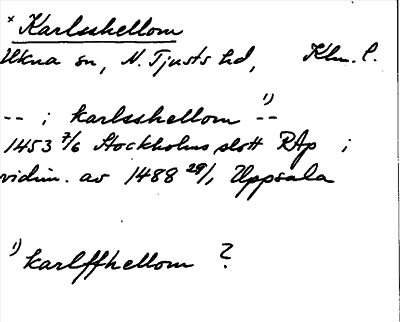 * Karlsshellom
Ukna sn, N. Tjusts hd, Klm. l.
-- i karlsshellom 1) --
1453 7/6 Stockholms slott RAp i
vidim. av 1488 29/1 Uppsala
1) karlffhellom ?